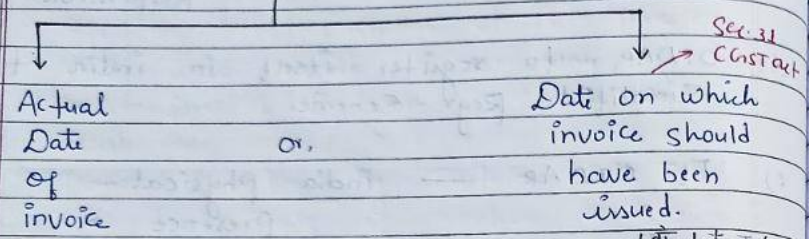 Sec. 31
CGST Act
Actual
Date
of
invoice
or,
Date on which
invoice should
have been
issued.